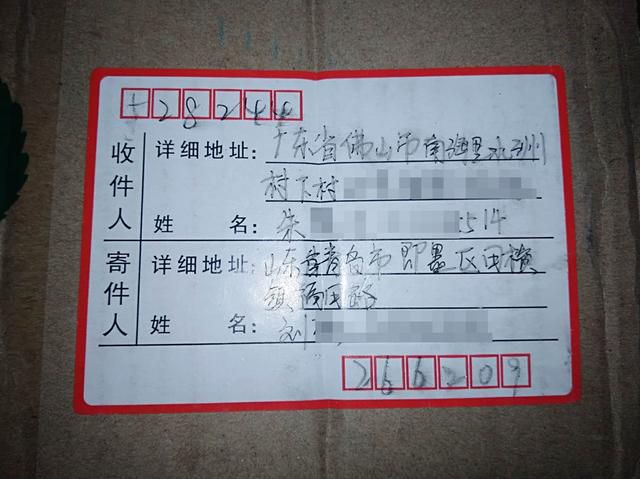 528244
收件人
详细地址: 广东省佛山市南海里水洲
村下村
姓 名: 朱 514
寄件人
详细地址: 山东省青岛市即墨区田横
镇 路
姓 名: 刘
266209